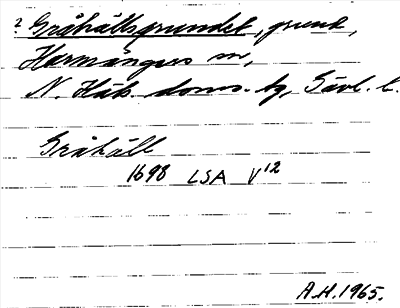 ? Gråhällsgrundet, grund,
Harmångers sn,
N. Häls. doms. tg, Gävl. l.
Gråhäll
1698 LSA V¹²
A.H. 1965.